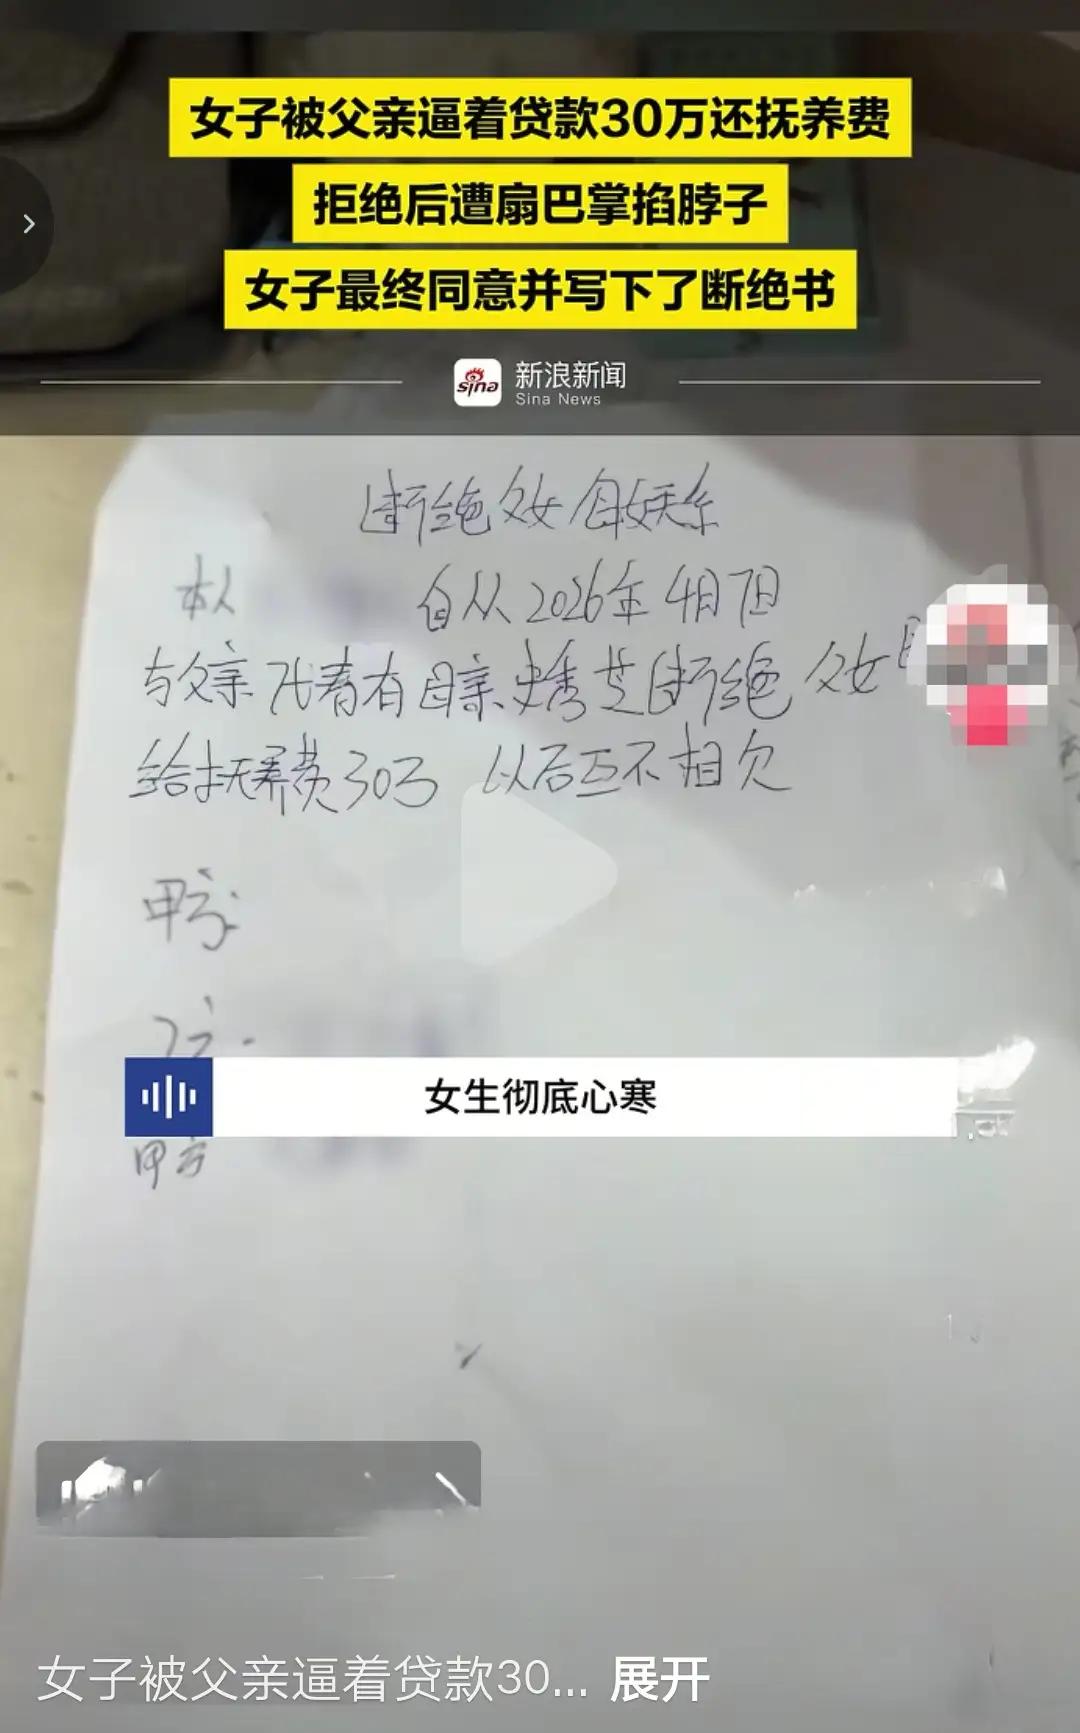 女子被父亲逼着贷款30万还抚养费
拒绝后遭扇巴掌掐脖子
女子最终同意并写下了断绝书
sina 新浪新闻
Sina News
断绝父女母女关系
本人 自从2026年4月7日
与父亲 春有母亲 史秀芝断绝 父女
给抚养费30万 以后互不相欠
甲方:
女生彻底心寒
甲方
女子被父亲逼着贷款30... 展开